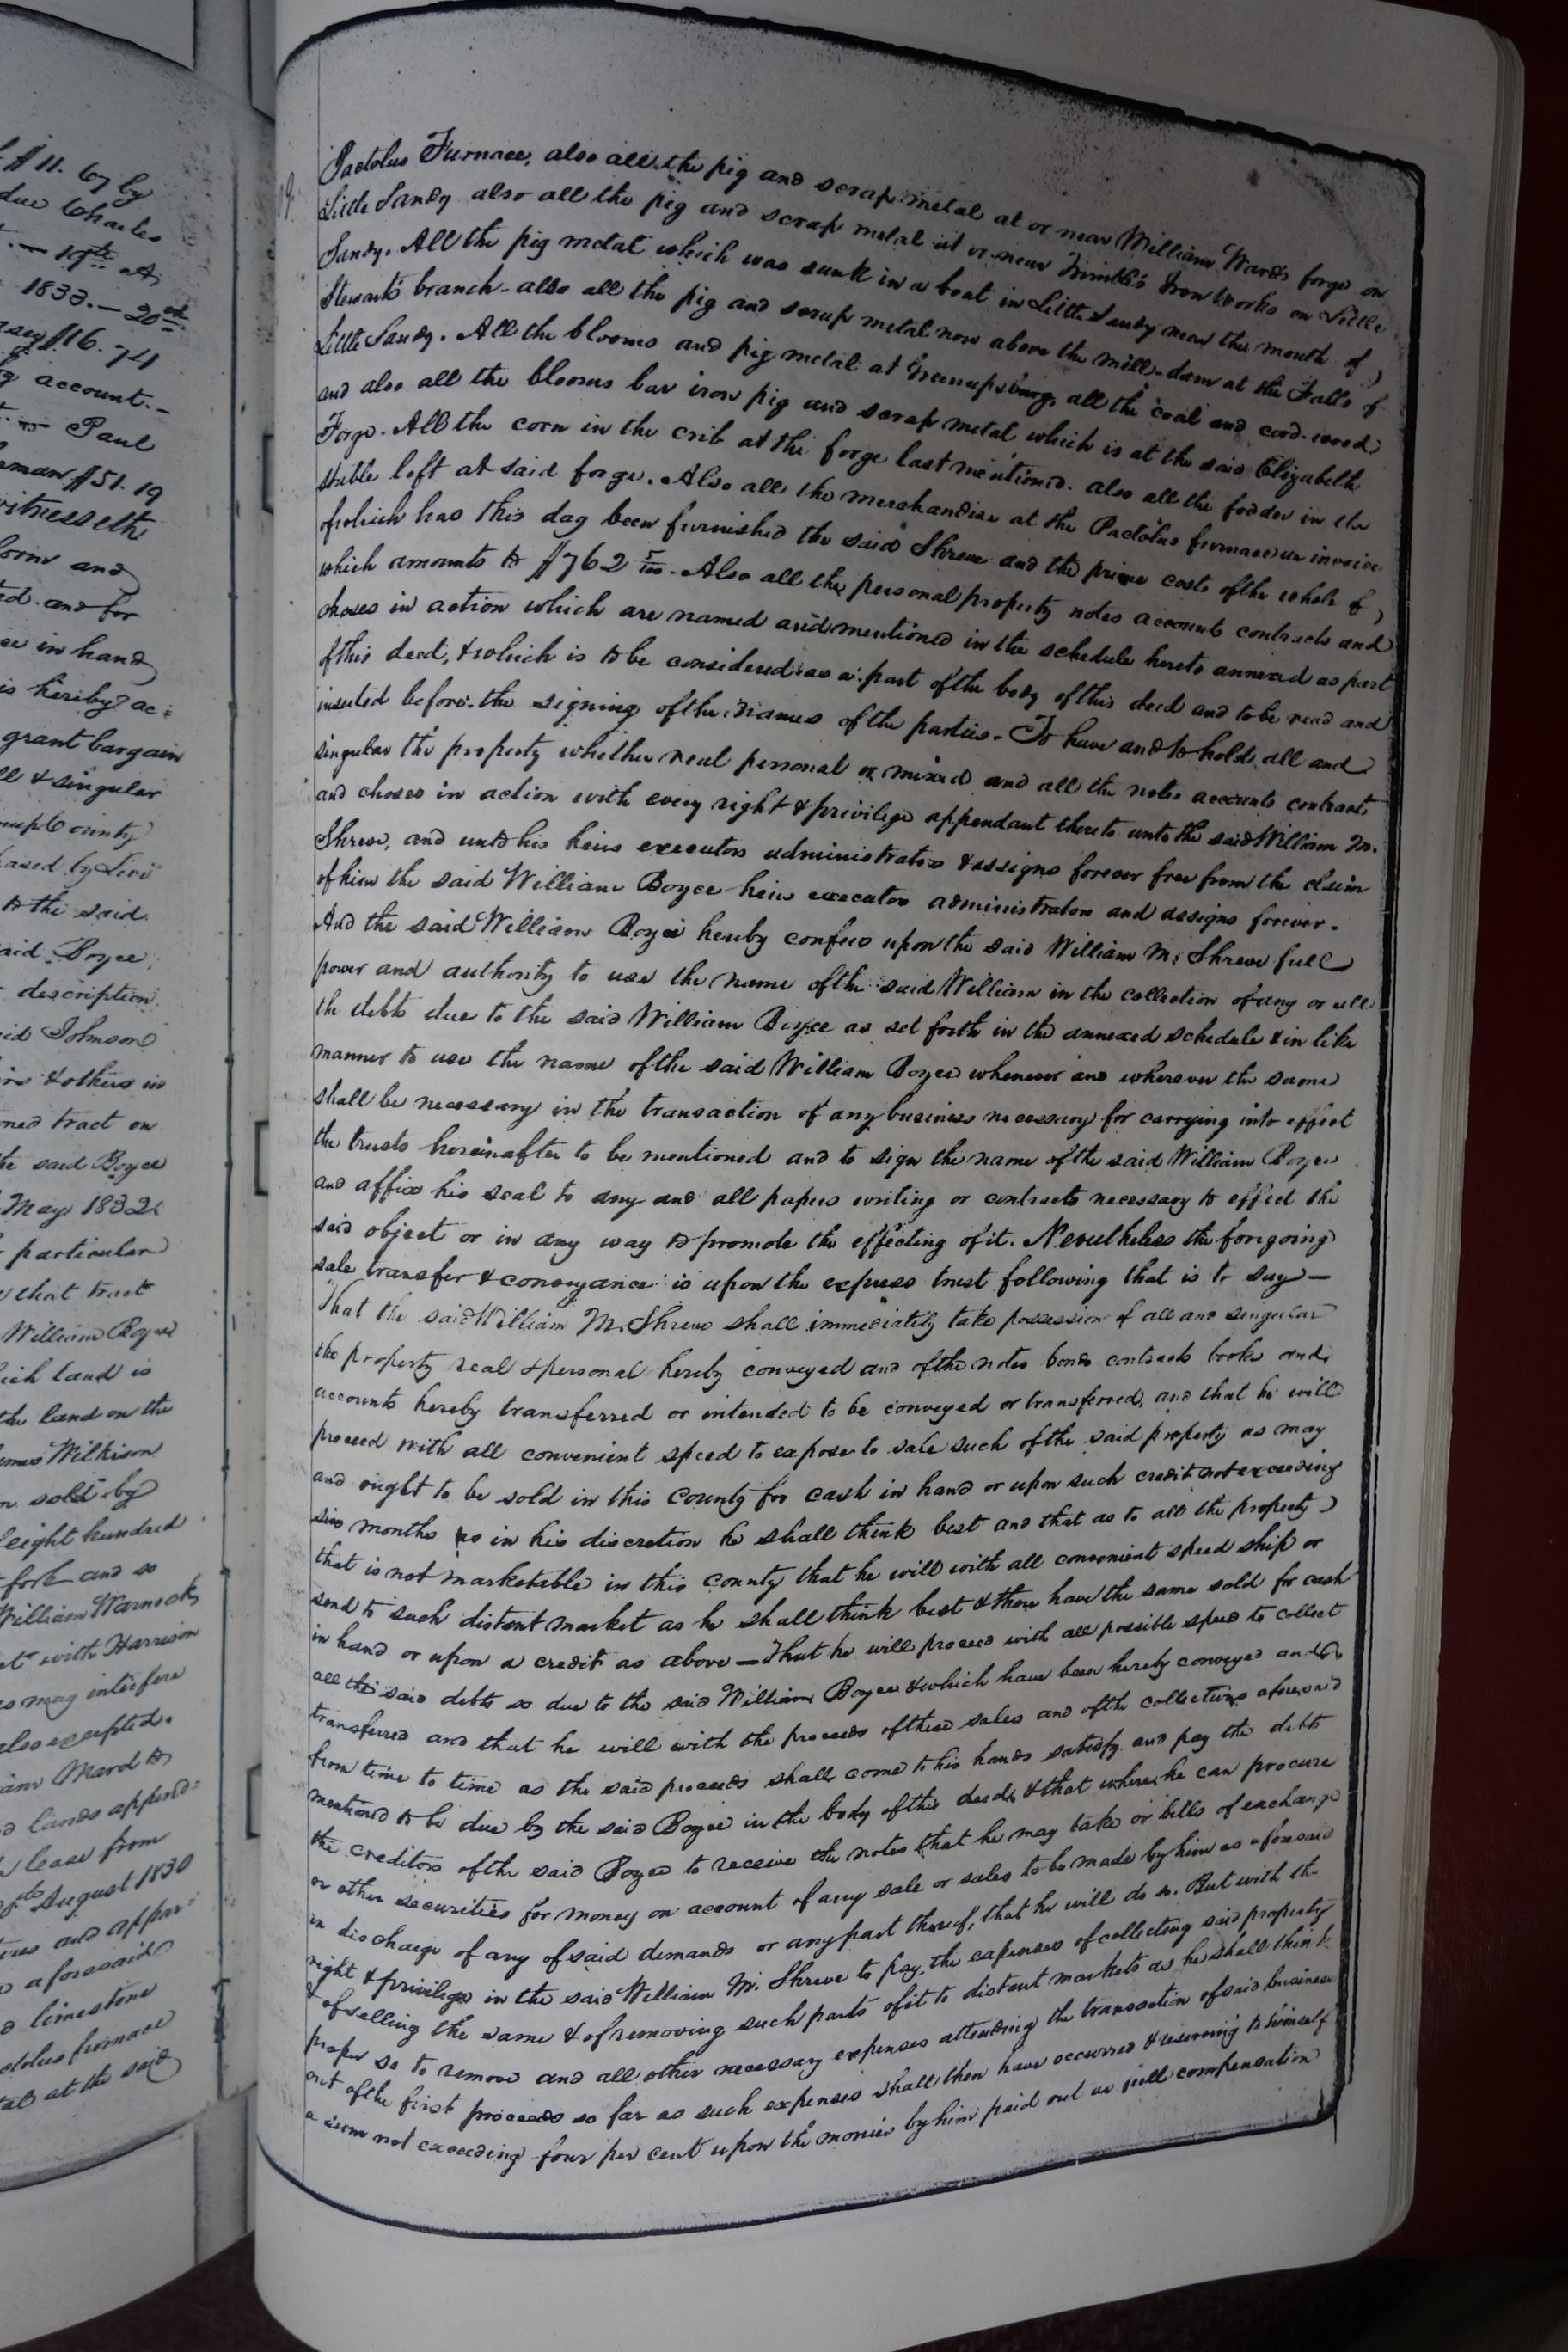 $11. 67 by
due Charles
1833. — 20th
$16. 74
account. —
Paul
$51. 19
witnesseth
corn and
and for
in hand
is hereby ac=
grant bargain
& singular
county
by Levi
to the said
said Boyce
description
said Johnson
& others in
tract on
the said Boyce
May 1832
particular
that tract
William Boyce
which land is
the land on the
James Wilkison
sold by
eight hundred
fork and so
William Warnock
with Harrison
as may interfere
also excepted.
Ward to
lands append=
lease from
August 1830
and appur=
aforesaid
limestone
Pactolus furnace
at the said
Pactolus Furnace, also all the pig and scrap metal at or near William Wards forge on
Little Sandy also all the pig and scrap metal at or near Trimble's Iron Works on Little
Sandy. All the pig metal which was sunk in a boat in Little Sandy near the mouth of
Stewart's branch - also all the pig and scrap metal now above the mill-dam at the Falls of
Little Sandy. All the blooms and pig metal at Greenupsburg, all the coal and cord-wood
and also all the blooms bar iron pig and scrap metal which is at the said Elizabeth
Forge. All the corn in the crib at the forge last mentioned. also all the fodder in the
stable loft at said forge. Also all the merchandise at the Pactolus furnace an invoice
of which has this day been furnished the said Shreve and the prime costs of the whole of
which amounts to $762 5/100. Also all the personal property notes accounts contracts and
choses in action which are named and mentioned in the schedule hereto annexed as part
of this deed, & which is to be considered as a part of the body of this deed and to be read and
inserted before the signing of the names of the parties - To have and to hold all and
singular the property whether real personal or mixed and all the notes accounts contracts
and choses in action with every right & privilege appendant thereto unto the said William M.
Shreve, and unto his heirs executors administrators & assigns forever free from the claim
of him the said William Boyce heirs executors administrators and assigns forever.
And the said William Boyce hereby confers upon the said William M. Shreve full
power and authority to use the name of the said William in the collection of any or all
the debts due to the said William Boyce as set forth in the annexed schedule & in like
manner to use the name of the said William Boyce whenever and wherever the same
shall be necessary in the transaction of any business necessary for carrying into effect
the trusts hereinafter to be mentioned and to sign the name of the said William Boyce
and affix his seal to any and all papers writing or contracts necessary to effect the
said object or in any way to promote the effecting of it. Nevertheless the foregoing
sale transfer & conveyance is upon the express trust following that is to say —
That the said William M. Shreve shall immediately take possession of all and singular
the property real & personal hereby conveyed and of the notes bonds contracts books and
accounts hereby transferred or intended to be conveyed or transferred, and that he will
proceed with all convenient speed to expose to sale such of the said property as may
and ought to be sold in this county for cash in hand or upon such credit not exceeding
six months as in his discretion he shall think best and that as to all the property
that is not marketable in this county that he will with all convenient speed ship or
send to such distant market as he shall think best & there have the same sold for cash
in hand or upon a credit as above — That he will proceed with all possible speed to collect
all the said debts so due to the said William Boyce & which have been hereby conveyed and
transferred and that he will with the proceeds of these sales and of the collections aforesaid
from time to time as the said proceeds shall come to his hands satisfy and pay the debts
mentioned to be due by the said Boyce in the body of this deed, & that where he can procure
the creditors of the said Boyce to receive the notes that he may take or bills of exchange
or other securities for money on account of any sale or sales to be made by him as aforesaid
in discharge of any of said demands or any part thereof, that he will do so. But with the
right & privilege in the said William M. Shreve to pay the expenses of collecting said property
& of selling the same & of removing such parts of it to distant markets as he shall think
proper so to remove and all other necessary expenses attending the transaction of said business
out of the first proceeds so far as such expenses shall then have occurred & reserving to himself
a sum not exceeding four per cent upon the monies by him paid out as full compensation